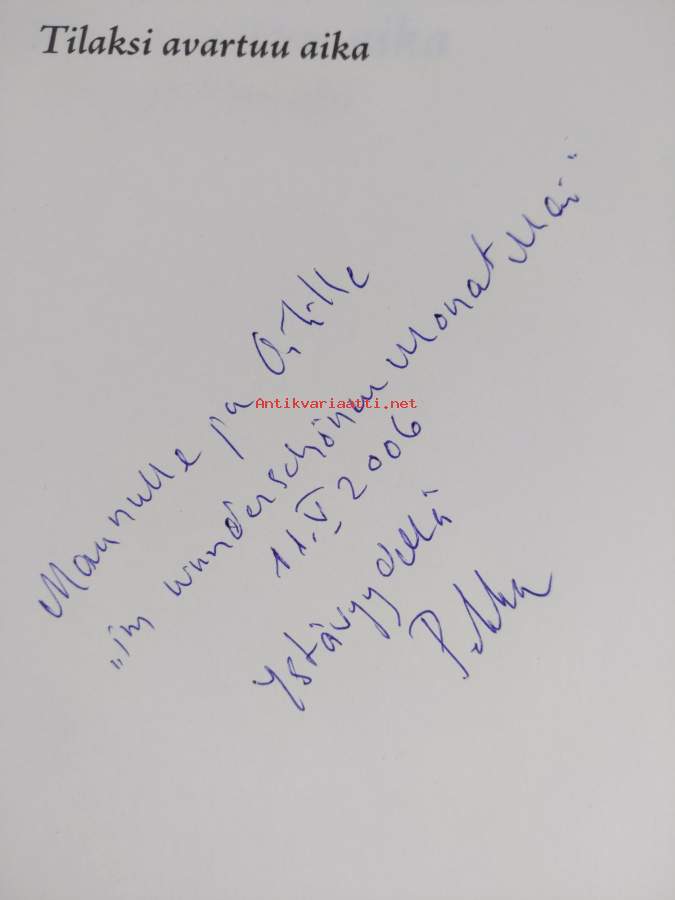 Tilaksi avartuu aika
Maunulle ja Outille
Antikvariaatti.net
„im wunderschönen Monat Mai"
11.V 2006
Ystävyydellä
Pekka